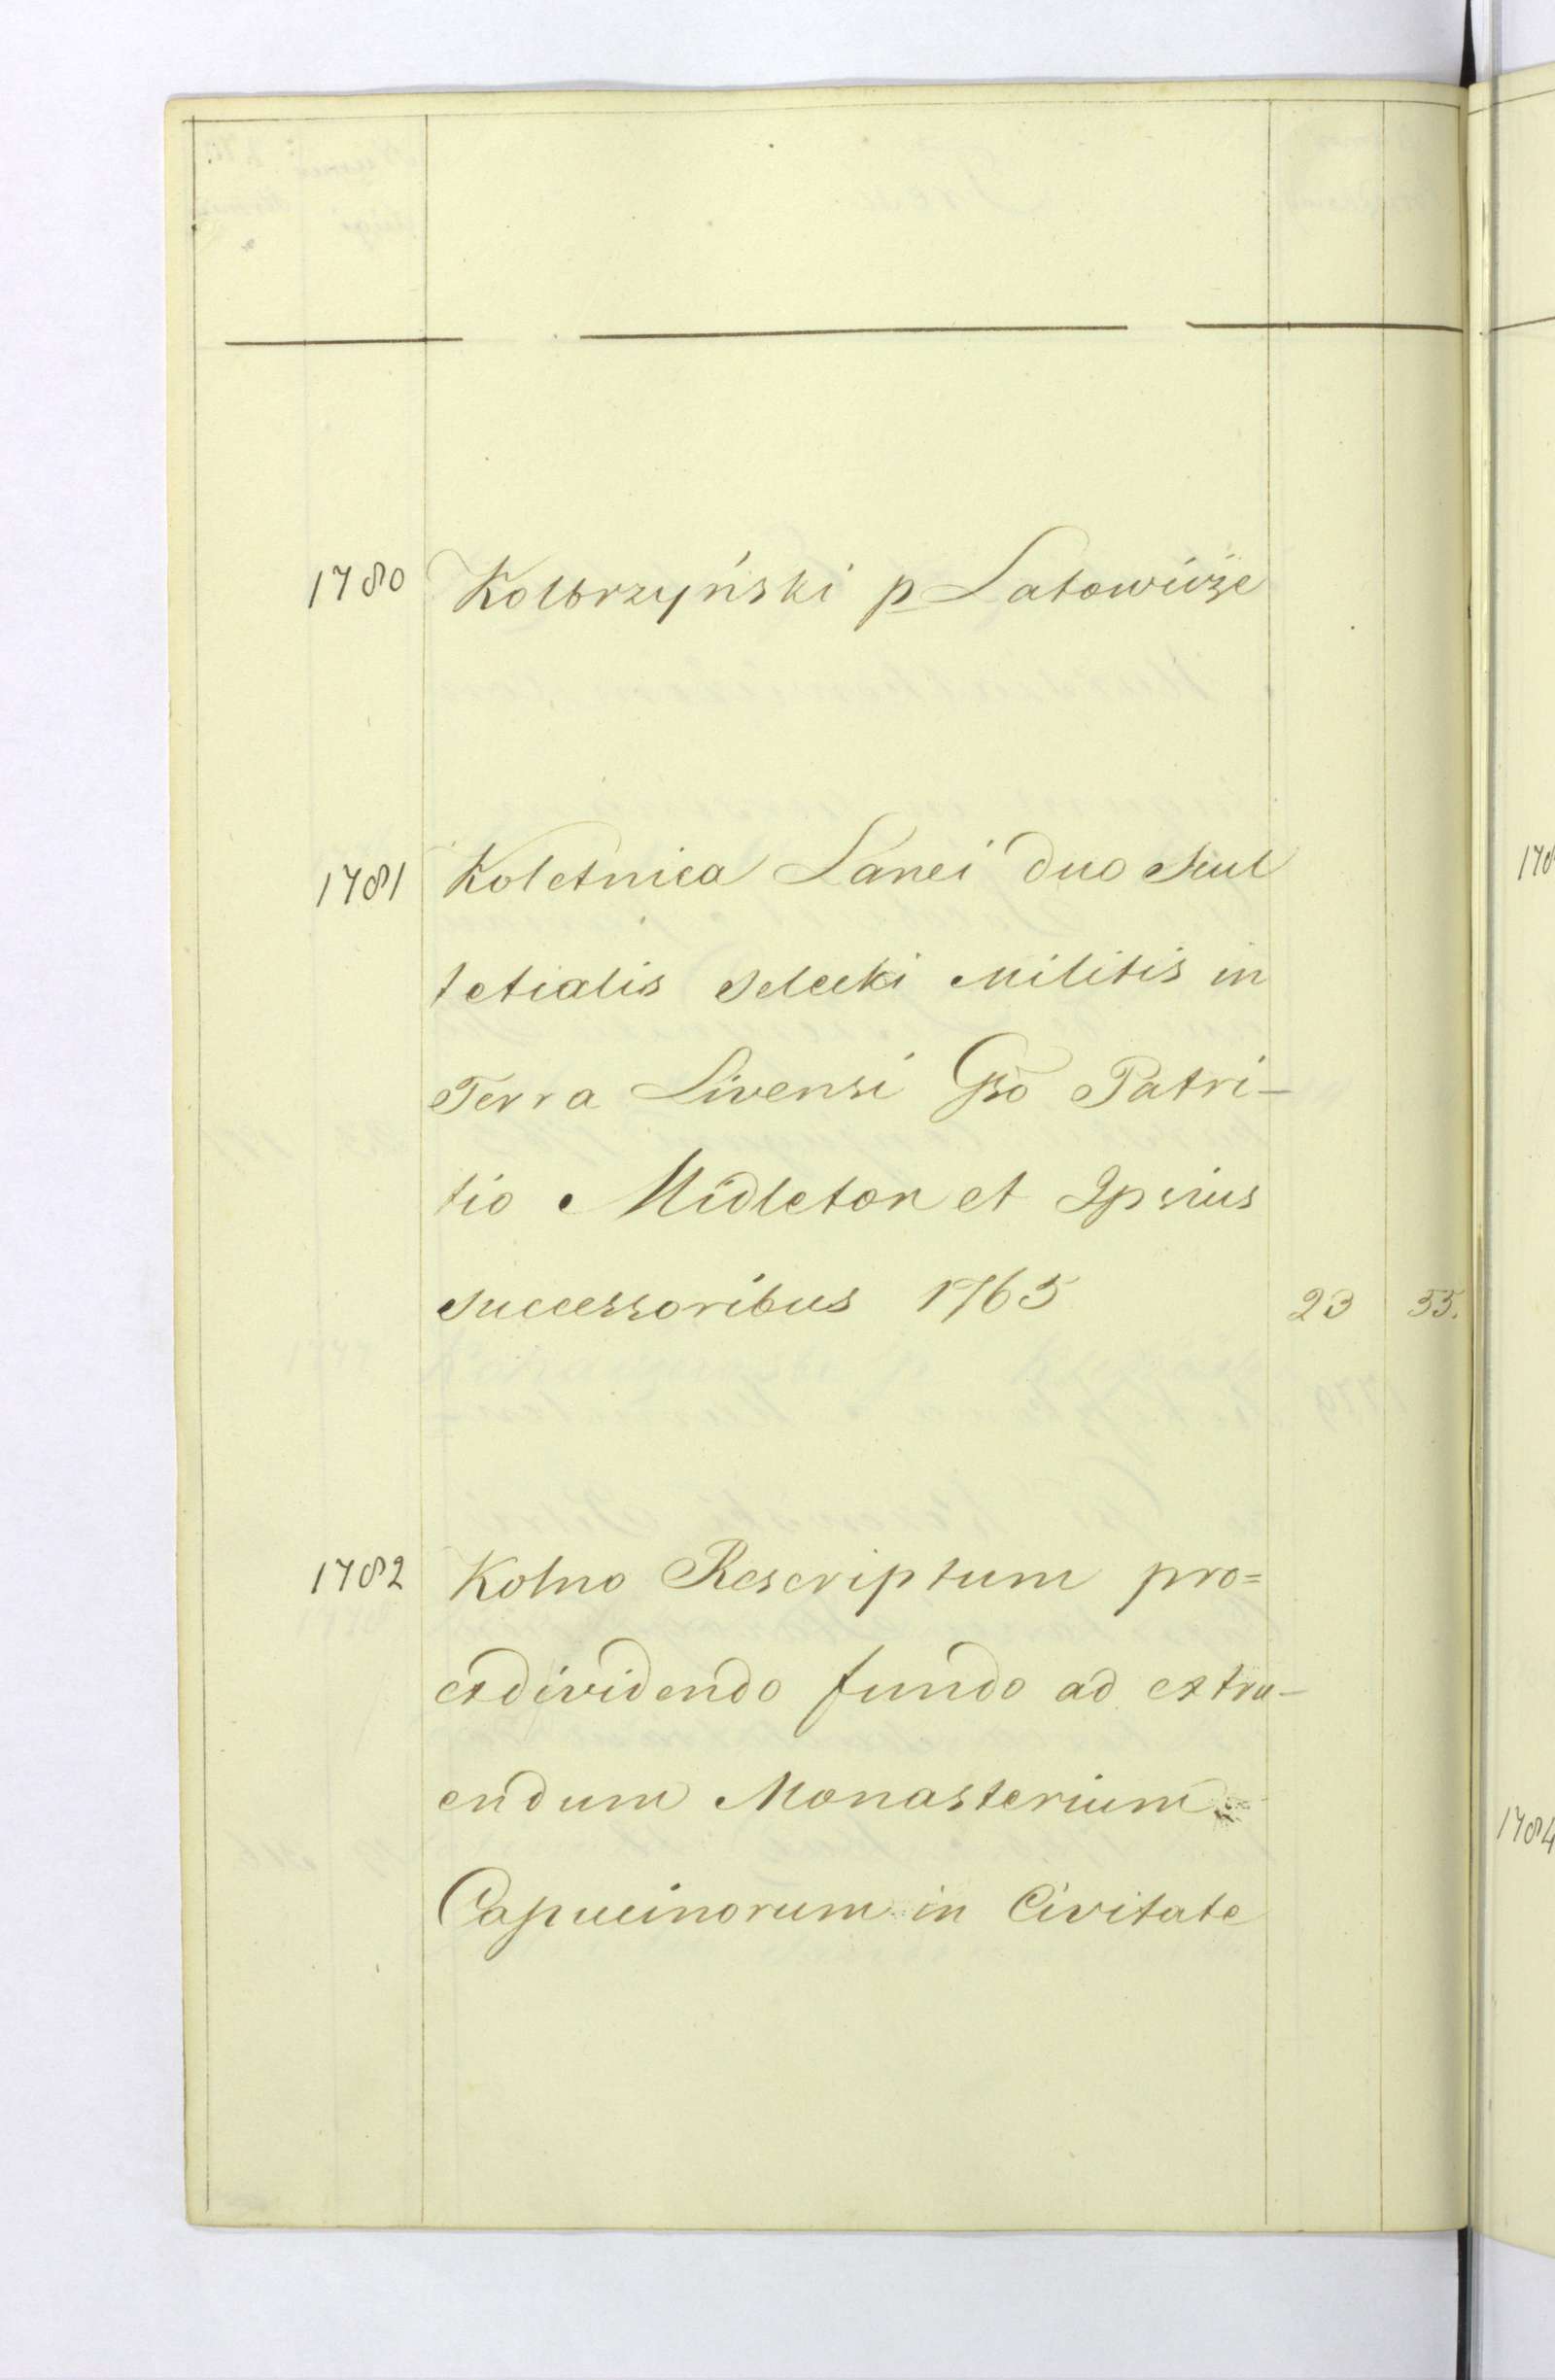 1780 Kolbrzyński p Latowicze
1781 Koletnica Lanei duo Scul
tetialis Selecti Militis in
Terra Livensi Gso Patri-
tio Midleton et Ipsius
Successoribus 1765 23 55.
1782 Kolno Rescriptum pro=
exdividendo fundo ad extru-
endum Monasterium
Capucinorum in Civitate
178
1784